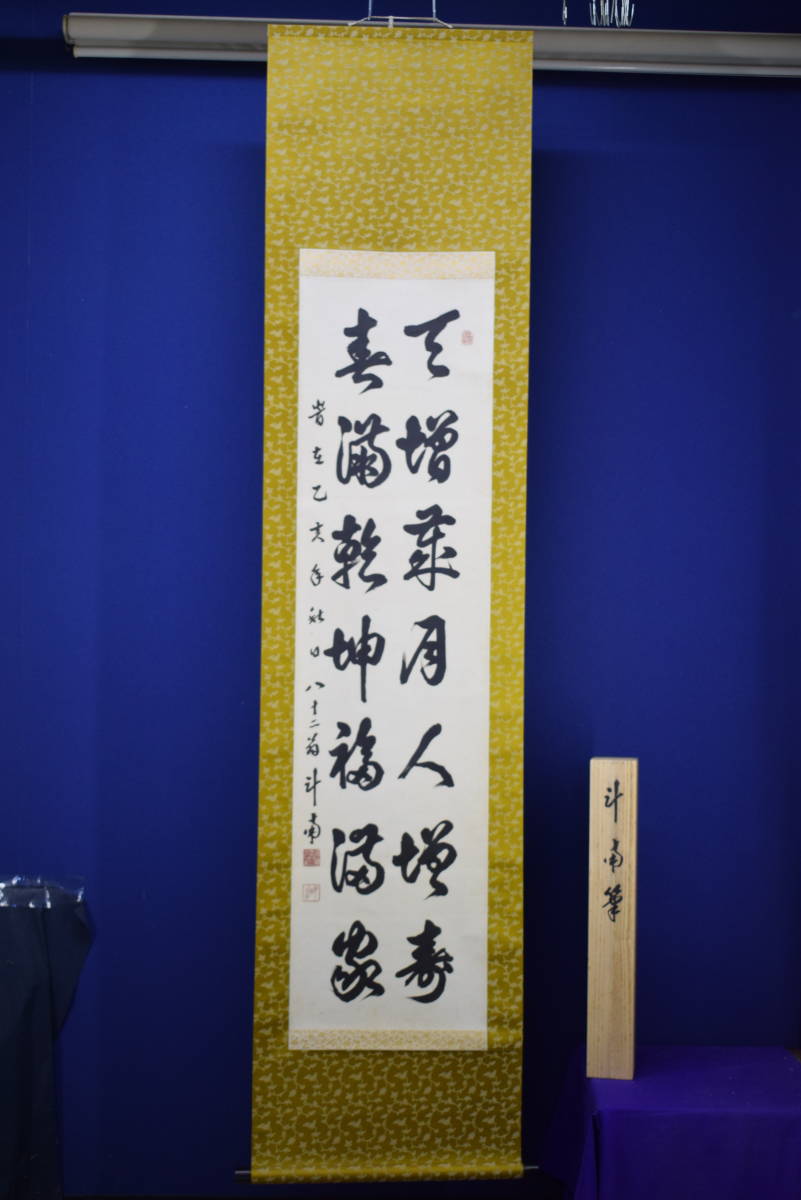 天增歳月人增寿
春満乾坤福満家
昔在乙亥年秋日八十二翁斗南
斗南筆